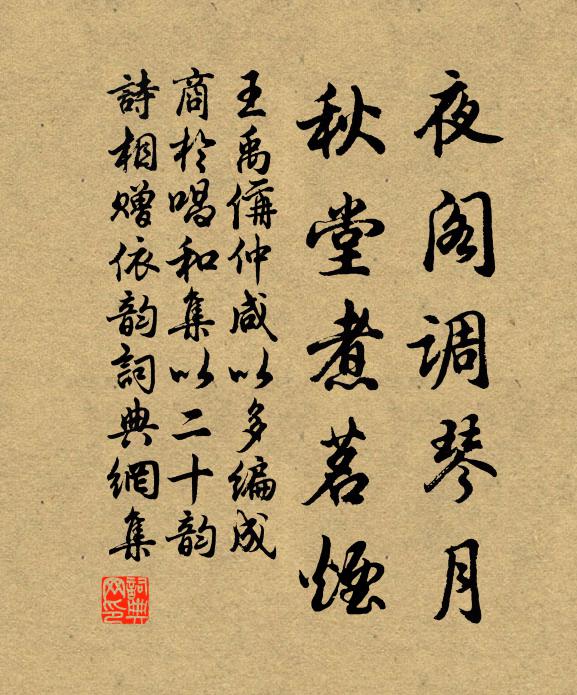 夜阁调琴月
秋堂煮茗煙
王禹偁仲咸以多编成
商於唱和集以二十韵
詩相贈依韵詞典網集
詞典网印